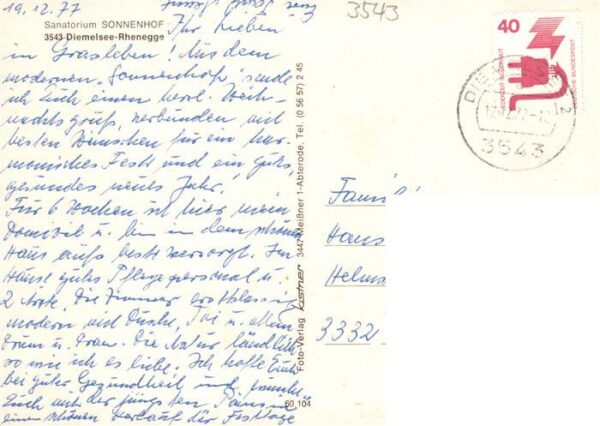 19.12.77
3543
Sanatorium SONNENHOF
3543 Diemelsee-Rhenegge
Ihr Lieben
in Grasleben! Aus dem
modernen „Sonnenhof“ sende
ich Euch einen herzl. Weih-
nachtsgruß, verbunden mit
besten Wünschen für ein har-
monisches Fest und ein gutes,
gesundes neues Jahr.
Für 6 Wochen ist hier mein
Domizil u. bin in dem schönen
Haus aufs beste versorgt. Im
Hause gutes Pflegepersonal u.
2 Ärzte. Die Zimmer erstklassig
modern mit Dusche, Toi u. allem
Drum u. Dran. Die Natur ländlich
so wie ich es liebe. Ich hoffe Euch
bei guter Gesundheit und wünsche
Euch mit der jüngsten
einen schönen Verlauf der Festtage
Foto-Verlag kistner 3447 Meißner 1-Abterode, Tel. (0 56 57) 2 45
60 104
40
JEDERZEIT SICHERHEIT
DEUTSCHE BUNDESPOST
2
3543
Hans
3332